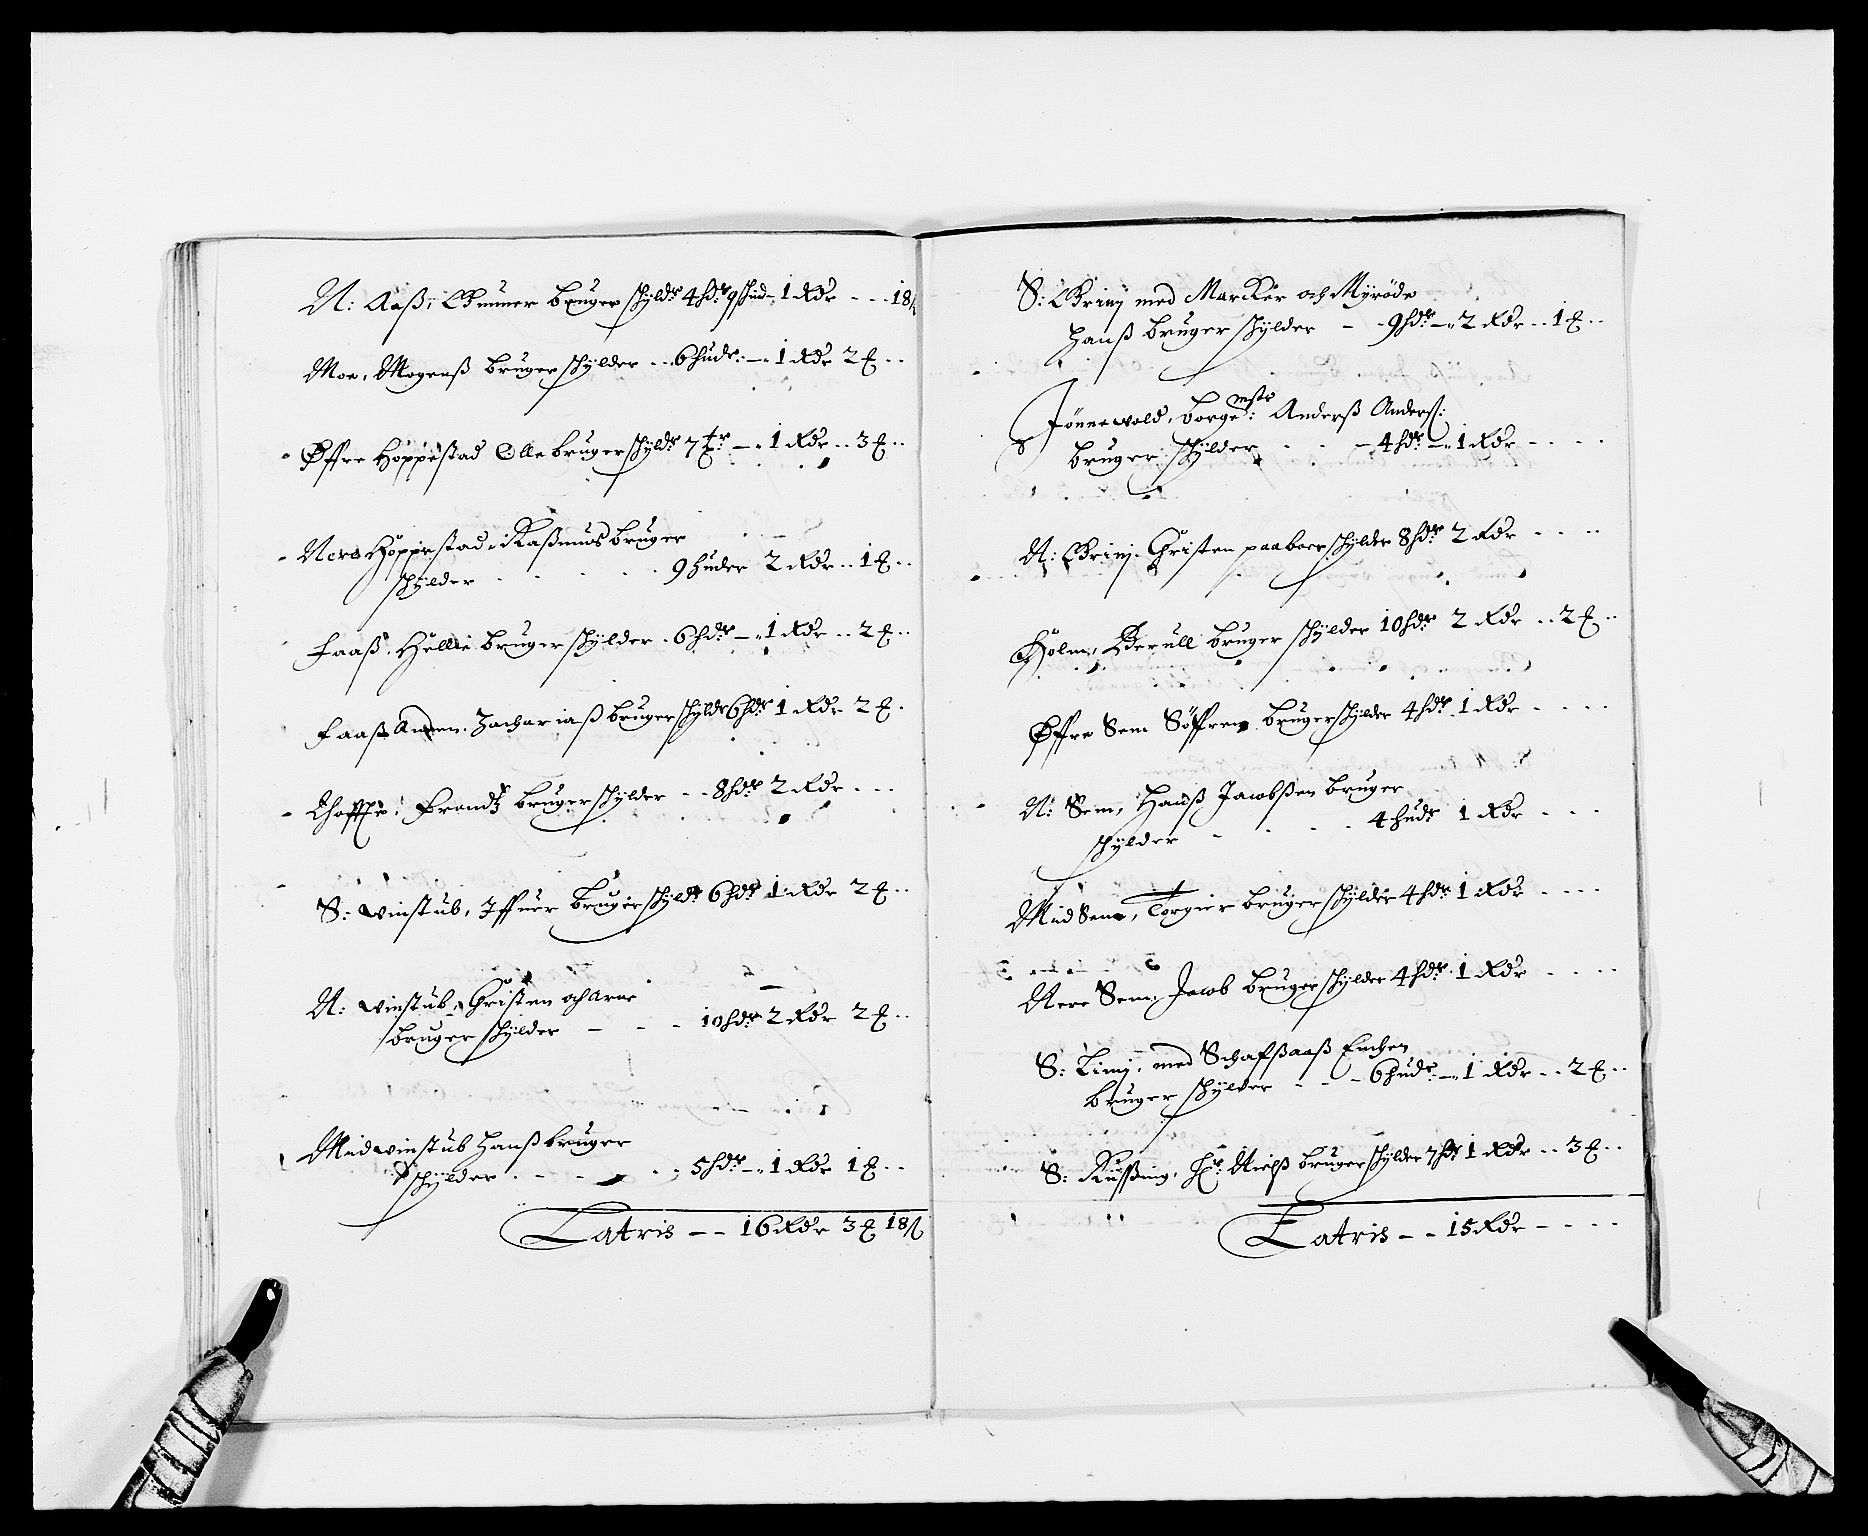 N: Aaß, Gunner bruger schylder 4 hdr 9 schind – 1 Rdr – – 18 ß
Moe, Mogenß bruger schylder – 6 hudr: – 1 Rdr 2 ℔ – –
Øffre Höppestad Olle bruger schyldr 7 – 1 Rdr – – 3 ℔ – –
Nere Höppestad, Raßmus bruger
schylder – – – 9 huder 2 Rdr – – 1 ℔ – –
Faaß, Hellie bruger schylder – 6 hdr – 1 Rdr – – 2 ℔ – –
Faaß Anden, Zachariaß bruger schyldr 6 hdr 1 Rdr 2 ℔ –
Frandtz bruger schylder – – 8 hdr 2 Rdr – – –
S: winstub, Iffuer bruger schyldr 6 hdr 1 Rdr 2 ℔ – –
N: winstub, Christen och Arne
bruger schylder – – – 10 hdr 2 Rdr 2 ℔ – –
Mid winstub Hanß bruger
schylder – – – 5 hdr – 1 Rdr 1 ℔ – –
Latris – – 16 Rdr 3 ℔ 18 ß
S: Griny med Marcker och Myröde
Hanß bruger schylder – – 9 hdr – 2 Rdr – – 1 ℔ – –
Jönnewold, borgemstr: Anderß Anderß:
bruger schylder – – – 4 hdr – 1 Rdr – – – –
N: Griny, Christen paaboer schylder 8 hdr 2 Rdr – – – –
Holm, Berull bruger schylder 10 hdr 2 Rdr – – 2 ℔ – –
Øffre Sem Söffren bruger schylder 4 hdr 1 Rdr – – – –
N: Sem, Hanß Jacobßen bruger
schylder – – – 4 hudr 1 Rdr – – –
Mid Sem, Torgier bruger schylder 4 hdr 1 Rdr – – – –
Nere Sem, Jacob bruger schylder 4 hdr 1 Rdr – – – –
S: Liny, med Schafßaaß Enchen
bruger schylder – – – 6 hudr: – 1 Rdr – – 2 ℔ – –
S: Rußing, Hr: Nielß bruger schylder 7 hdr 1 Rdr – – 3 ℔ – –
Latris – – 15 Rdr – – – –